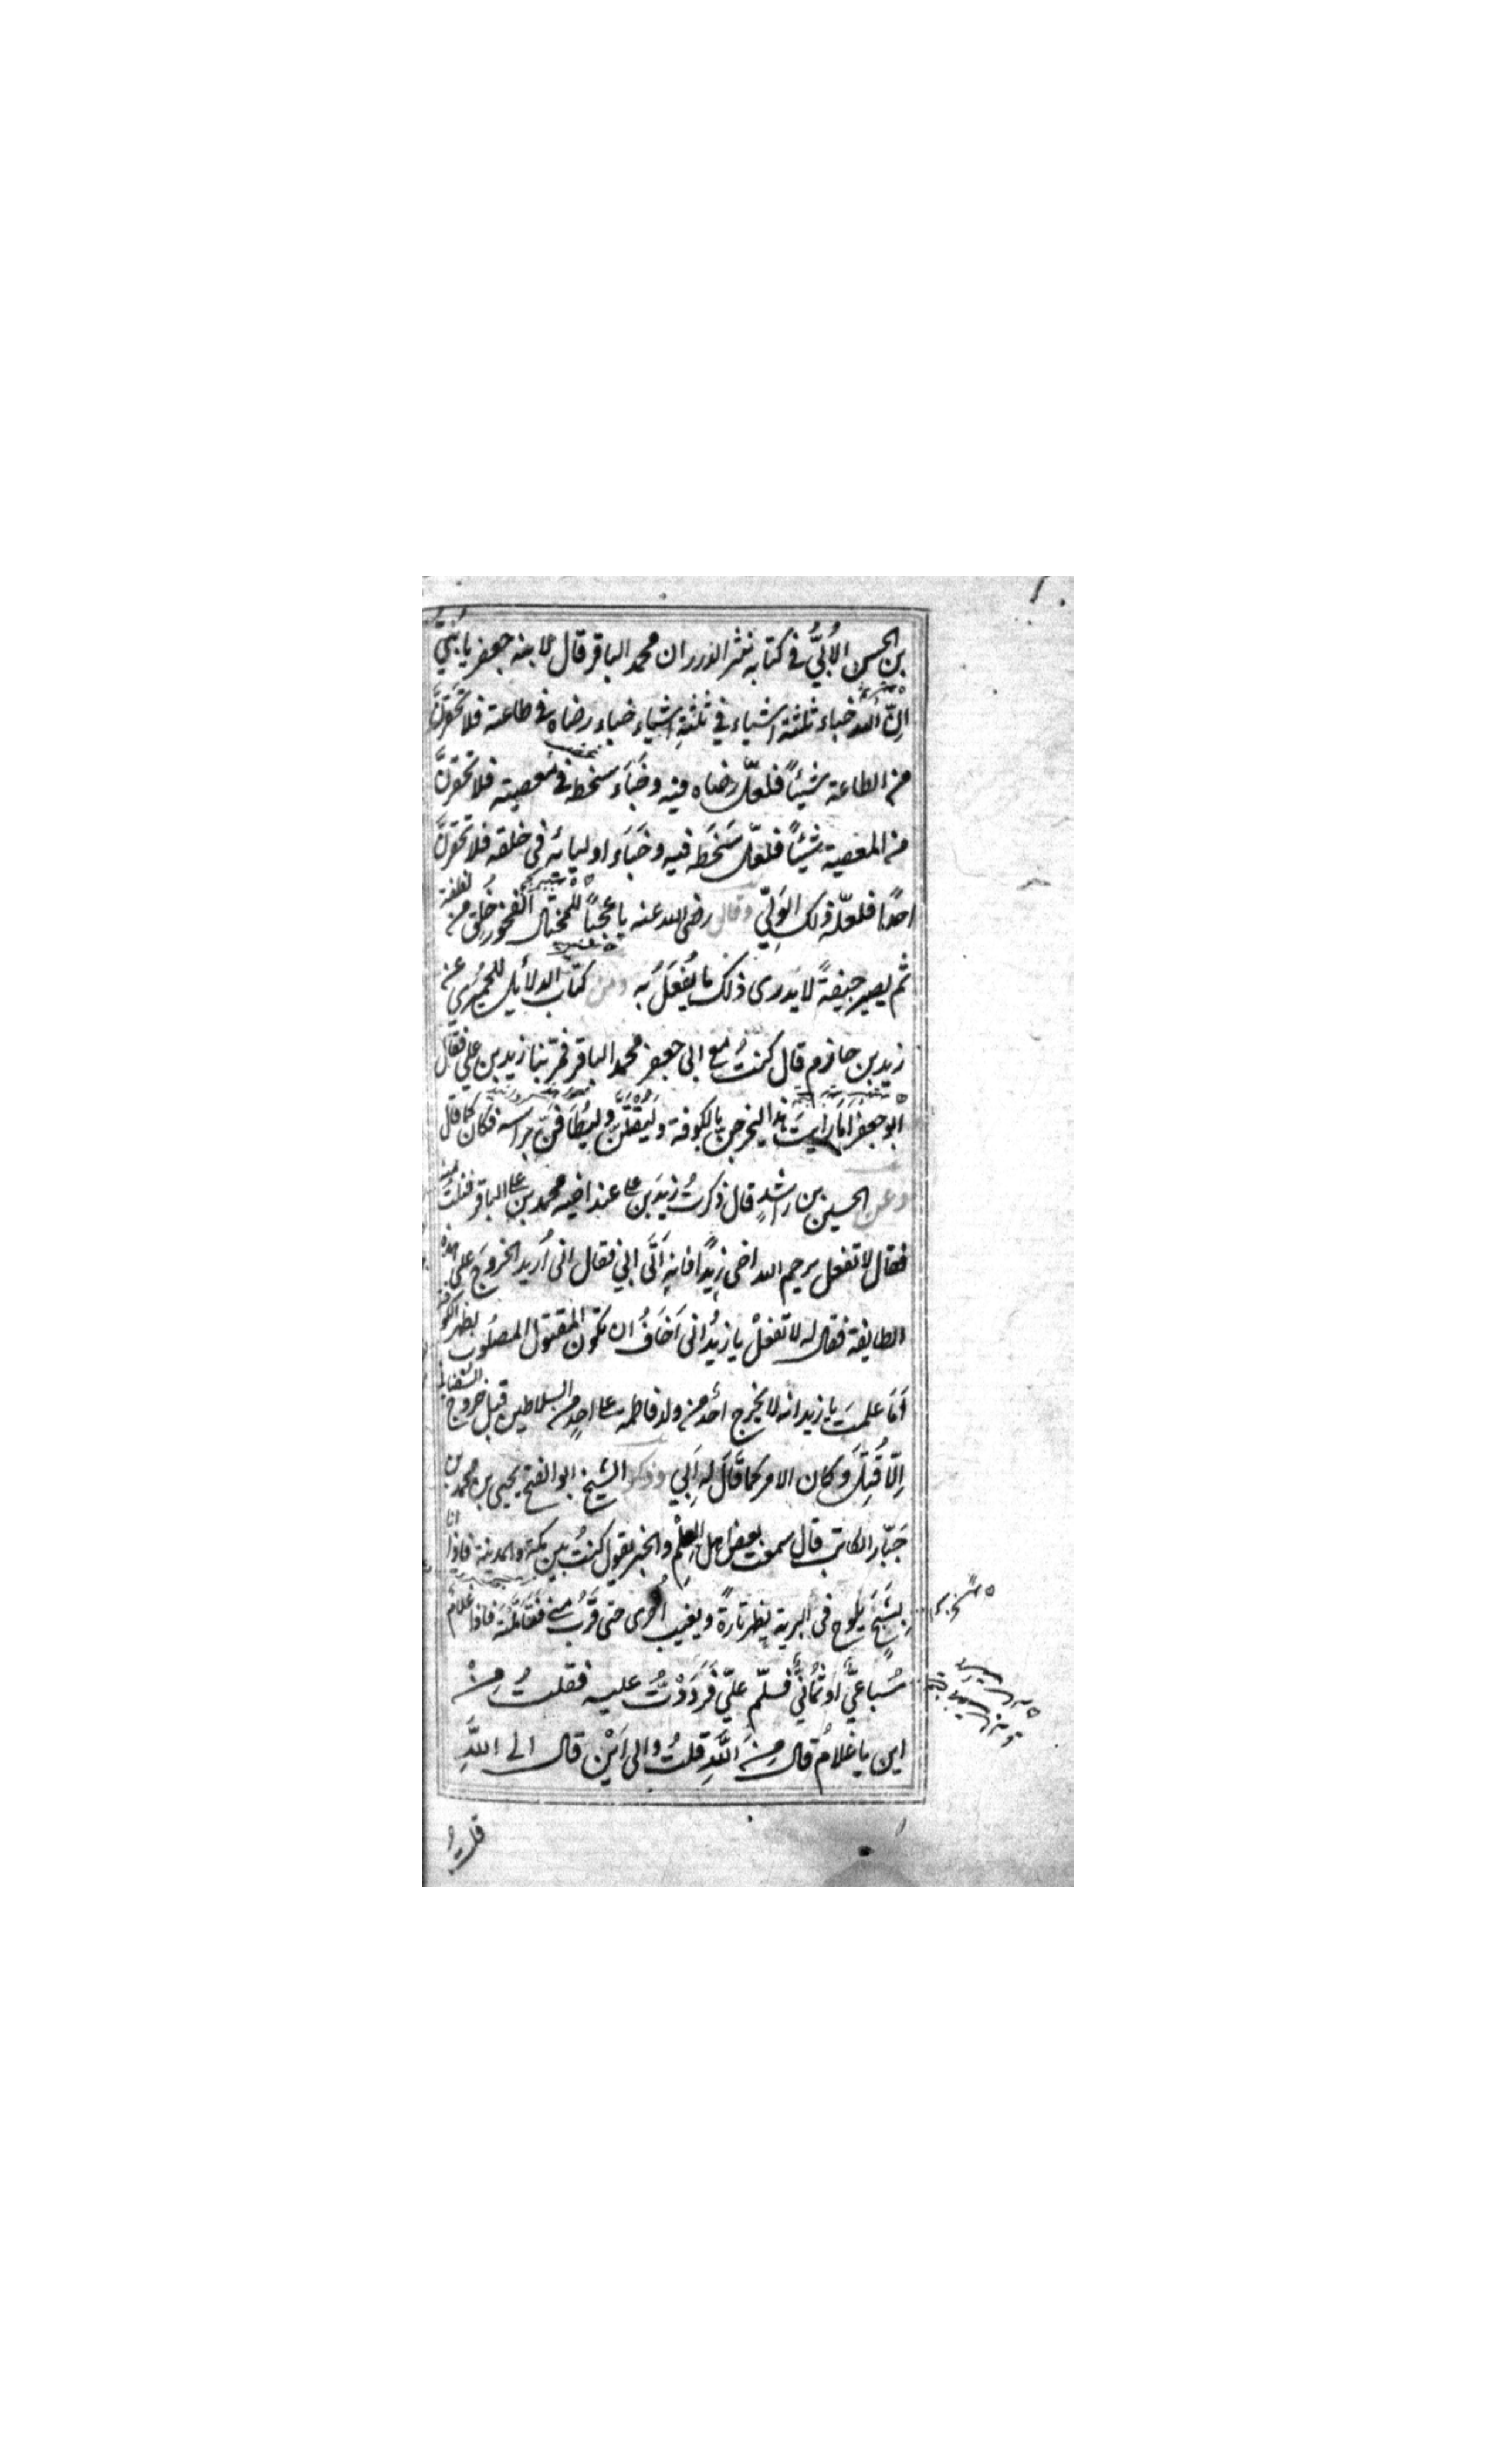 بن الحسن الأُبّيُّ في كتابه نثر الدرر ان محمد الباقر قال لابنه جعفر يا بُنَيَّ
اِنّ الله خباء ثلثة اشياء في ثلثةِ اشياء خباء رضاه في طاعته فلا تحقرَنَّ
من الطاعة شيئاً فلعلّ رضاه فيه وخَبَاَء سخطه في معصيته فلا تحقرنَّ
من المعصية شيئاً فلعلّ سَخَطه فيه وخَبَاَء اوليائه في خلقه فلا تحقرنَّ
احدًا فلعلّه ذلك الوَلِيّ وقال رضى الله عنه يا عجبًا للمختال الفخور خُلِق من نطفة
ثم يصير جيفةً لا يدرى ذلك ما يُفعَلُ به ومن كتاب الدلائل للحميري عن
زيد بن حازم قال كنتُ مع ابى جعفر محمد الباقر فمرّ بنا زيد بن علي فقال
ابو جعفر اَمَا رايتَ هذا ليخرجنّ بالكوفة وليُقتلنّ وليُطافنّ براسه فكان كما قال
وعن الحسين بن راشدٍ قال ذكرتُ زيدَ بن على عند اخيه محمد بن على الباقر فنلتُ منه
فقال لا تفعل يرحم الله اخى زيدًا فانه اَتَى ابي فقال انى اُريد الخروجَ على هذه
الطايفة فقال له لا تفعلْ يا زيدُ انى اَخَافُ ان تكون المقتول المصلوب بظهر الكوفة
اَمَا علمتَ يا زيد انه لا يخرج اَحدٌ من ولد فاطمة على احدٍ من السلاطين قبل خروج السفياني
اِلّا قُتِلَ وكان الامر كما قال له اَبِي وذكر الشيخ ابو الفتح يحيى بن محمد بن
جَبّار الكاتب قال سمعت بعض اهل العِلْمِ والخير يقول كنتُ بين مكة والمدينة فاذا انا
بشَبَحٍ يلوح في البرية يظهر تارةً ويغيب اُخرى حتى قَرُبَ منى فتَاَمَّلْتُه فاذا غلامٌ
سُباعيٌّ او ثُمانيٌّ فسلّم عليّ فَرَدَدْتُ عليه فقلتُ مِنْ
اين يا غلامُ قال مِنَ اللهِ قلتُ والى اَيْنَ قال الى اللهِ
قلتُ